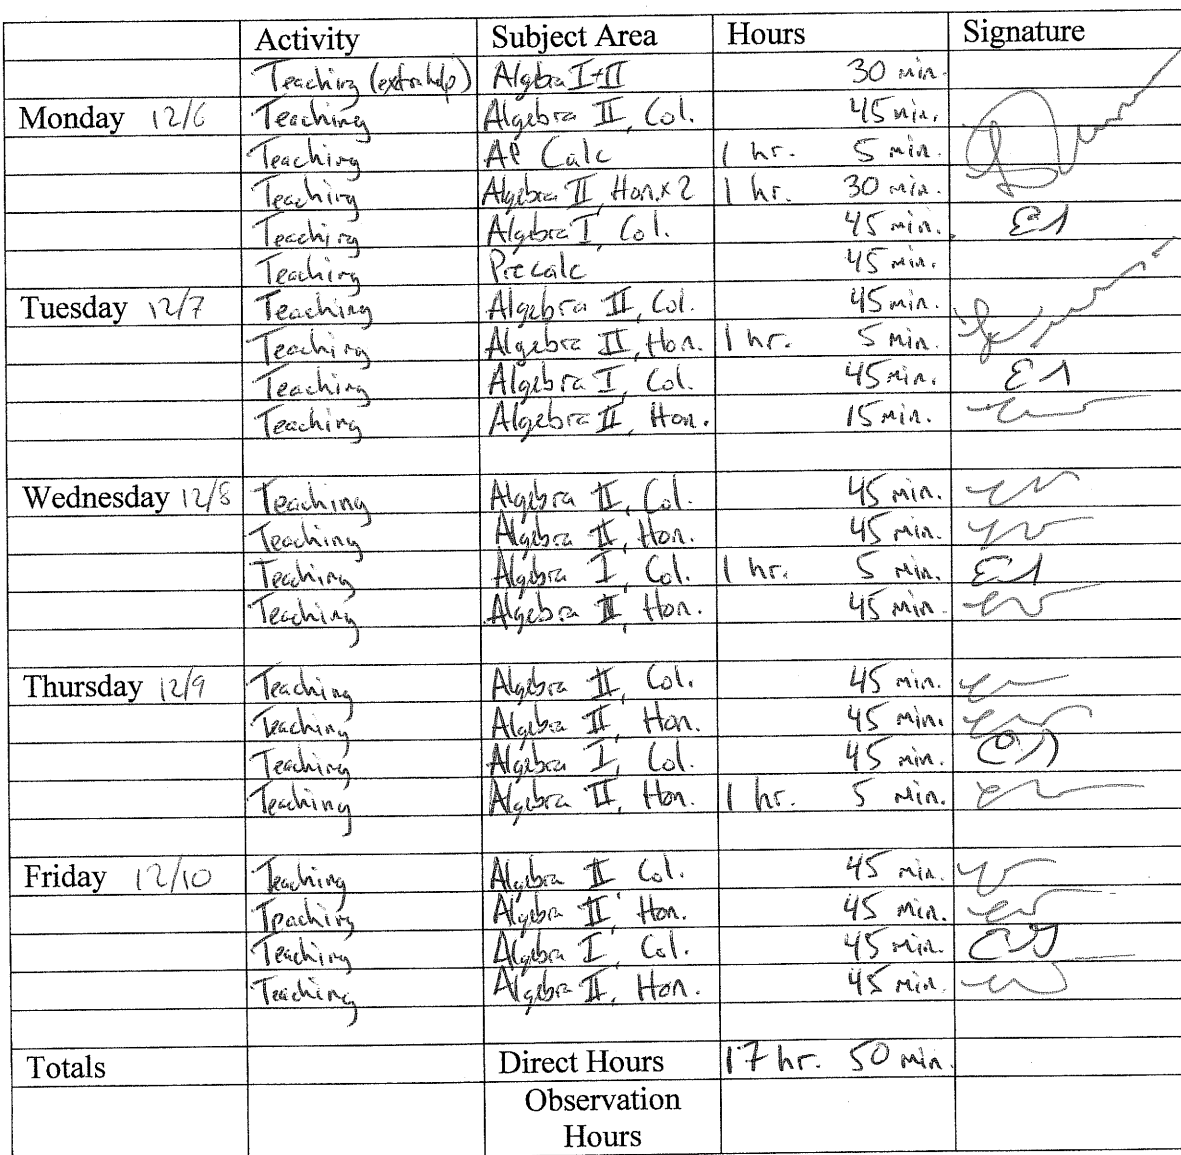 Activity Subject Area Hours Signature
Teaching (extra help) Algebra I+II 30 min.
Monday 12/6 Teaching Algebra II, Col. 45 min.
Teaching AP Calc 1 hr. 5 min.
Teaching Algebra II, Hon. x 2 1 hr. 30 min.
Teaching Algebra I, Col. 45 min.
Teaching Precalc 45 min.
Tuesday 12/7 Teaching Algebra II, Col. 45 min.
Teaching Algebra II, Hon. 1 hr. 5 min.
Teaching Algebra I, Col. 45 min.
Teaching Algebra II, Hon. 15 min.
Wednesday 12/8 Teaching Algebra II, Col. 45 min.
Teaching Algebra II, Hon. 45 min.
Teaching Algebra I, Col. 1 hr. 5 min.
Teaching Algebra II, Hon. 45 min.
Thursday 12/9 Teaching Algebra II, Col. 45 min.
Teaching Algebra II, Hon. 45 min.
Teaching Algebra I, Col. 45 min.
Teaching Algebra II, Hon. 1 hr. 5 min.
Friday 12/10 Teaching Algebra II Col. 45 min.
Teaching Algebra II, Hon. 45 min.
Teaching Algebra I, Col. 45 min.
Teaching Algebra II, Hon. 45 min.
Totals Direct Hours 17 hr. 50 min.
Observation
Hours